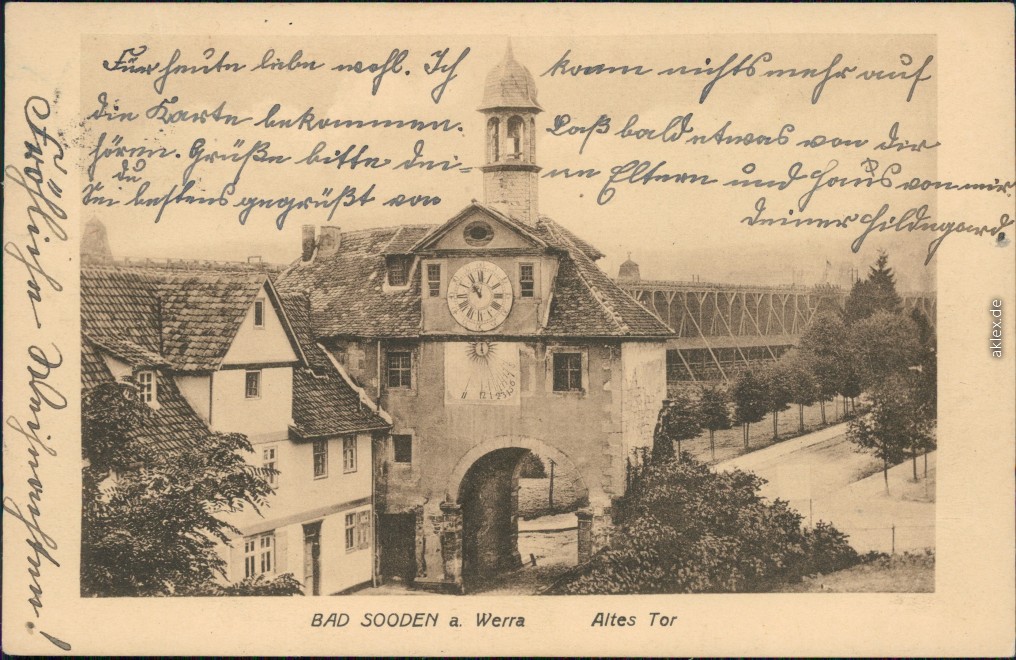 Für heute lebe wohl. Ich komm nichts mehr auf
die Karte bekommen. Laß bald etwas von dir
hören. Grüße bitte dei- ne Eltern und Haus von mir
du
Sei bestens gegrüßt von deiner Hildegard.
Fröhliche Weihnachten!
BAD SOODEN a. Werra Altes Tor
aklex.de